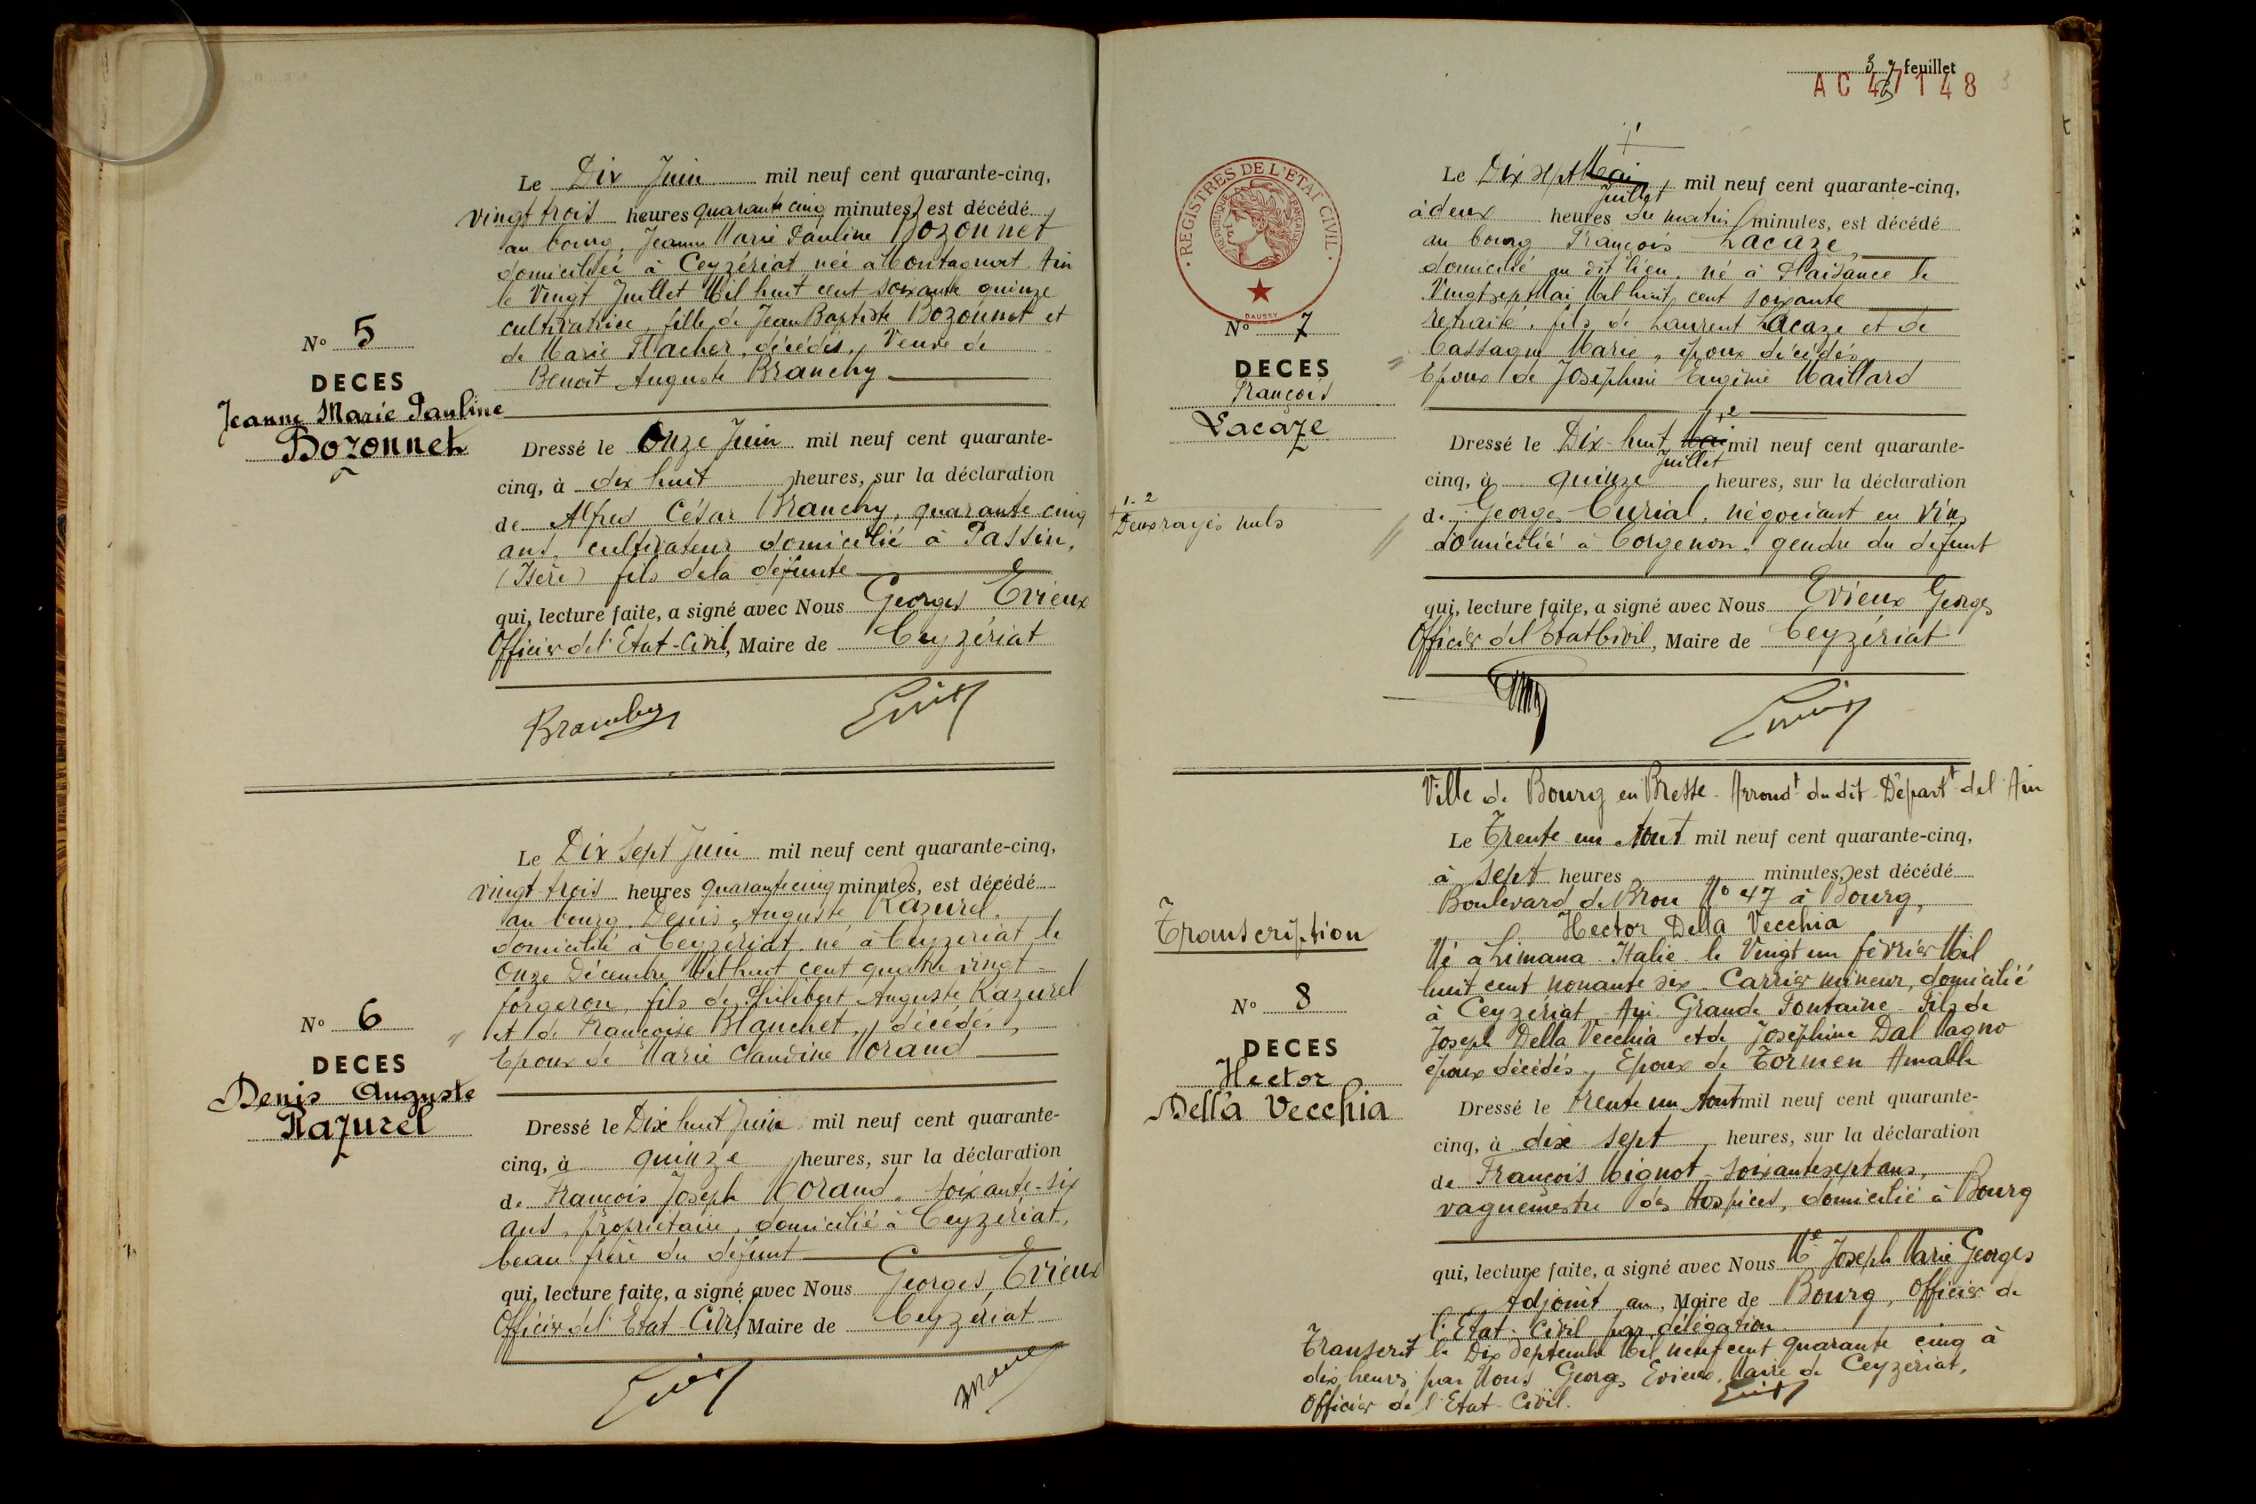 Le Dix Juin mil neuf cent quarante-cinq,
vingt trois heures quarante cinq minutes, est décédé
au bourg, Jeanne Marie Pauline Bozonnet
domiciliée à Ceyzériat née à Montagnat Ain
le Vingt Juillet Mil huit cent soixante quinze
cultivatrice, fille de Jean Baptiste Bozonnet et
de Marie Flacher, décédés, Veuve de
Benoît Auguste Branchy
N° 5
DECES
Jeanne Marie Pauline
Bozonnet
Dressé le Onze Juin mil neuf cent quarante-
cinq, à dix huit heures, sur la déclaration
de Alfred César Branchy, quarante cinq
ans, cultivateur domicilié à Passin,
(Isère) fils de la défunte
qui, lecture faite, a signé avec Nous Georges Evieux
Officier de l'Etat-Civil, Maire de Ceyzériat
Le Dix Sept Juin mil neuf cent quarante-cinq,
vingt-trois heures quarante cinq minutes, est décédé
au bourg, Denis Auguste Razurel,
domicilié à Ceyzériat né à Ceyzériat le
Onze Décembre Mil huit cent quatre vingt-
forgeron, fils de Philibert Auguste Razurel
et de Françoise Blanchet, décédés,
Epoux de Marie Claudine Morand
N° 6
DECES
Denis Auguste
Razurel
Dressé le Dix huit Juin mil neuf cent quarante-
cinq, à quinze heures, sur la déclaration
de François Joseph Morand, soixante-six
ans, propriétaire, domicilié à Ceyzériat,
beau frère du défunt
qui, lecture faite, a signé avec Nous Georges Evieux
Officier de l'Etat-Civil, Maire de Ceyzériat
3 7 feuillet
AC 47148
REGISTRES DE L'ETAT CIVIL
REPUBLIQUE FRANÇAISE
DAUSSY
Le Dix sept Mai Juillet mil neuf cent quarante-cinq,
à deux heures du matin minutes, est décédé
au bourg François Lacaze,
domicilié au dit lieu, né à Plaisance le
Vingt sept Mai Mil huit cent soixante
retraité, fils de Laurent Lacaze et de
Cassagne Marie, époux décédés
Epoux de Joséphine Eugénie Maillard
N° 7
DECES
François
Lacaze
Dressé le Dix-huit Mai Juillet mil neuf cent quarante-
cinq, à quinze heures, sur la déclaration
de Georges Curial, négociant en vins
domicilié à Corgenon, gendre du défunt
1. 2
Deux rayés nuls
qui, lecture faite, a signé avec Nous Evieux Georges
Officier de l'Etat Civil, Maire de Ceyzériat
Ville de Bourg en Bresse - Arrondt du dit - Départt de l'Ain
Le Trente un Aout mil neuf cent quarante-cinq,
à sept heures minutes, est décédé
Boulevard de Brou N° 47 à Bourg,
Hector Della Vecchia
Né à Limana - Italie - le Vingt un février Mil
huit cent nonante six - Carrier mineur, domicilié
à Ceyzériat - Ain - Grande Fontaine - Fils de
Joseph Della Vecchia et de Joséphine Dal Magno
époux décédés, Epoux de Tormen Amable
Transcription
N° 8
DECES
Hector
Della Vecchia
Dressé le trente un Aout mil neuf cent quarante-
cinq, à dix sept heures, sur la déclaration
de François Mignot, soixante sept ans,
vaguemestre des Hospices, domicilié à Bourg
qui, lecture faite, a signé avec Nous Me Joseph Marie Georges
Adjoint au, Maire de Bourg, Officier de
l'Etat-Civil par délégation
Transcrit le Dix Septembre Mil neuf cent quarante cinq à
dix heures par Nous Georges Evieux, Maire de Ceyzériat,
Officier de l'Etat-Civil.